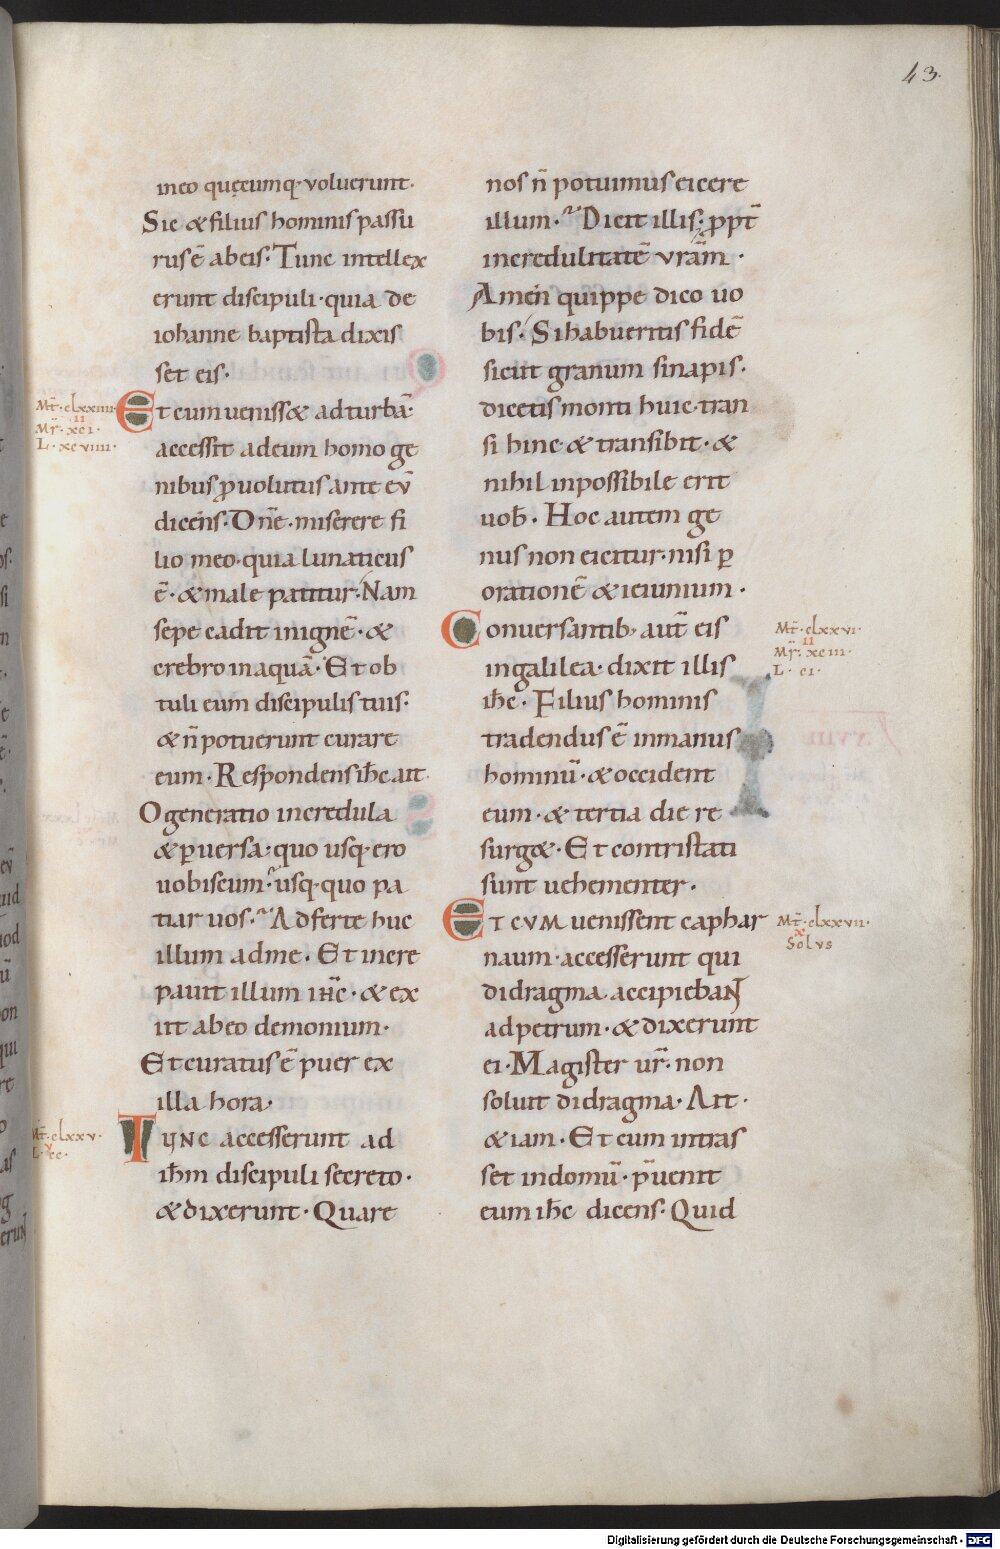 43.
meo quęcumq; voluerunt.
Sic & filius hominis passu
rus ē ab eis. Tunc intellex
erunt discipuli. quia de
iohanne baptista dixis
set eis.
Mt̄. clxxiiii.
II
Mr̄. xci.
L. xcviiii.
Et cum ueniss& ad turbā.
accessit ad eum homo ge
nibus ꝓuolutus ante eū
dicens. Dn̄e. miserere fi
lio meo. quia lunaticus
ē. & male patitur. Nam
sepe cadit in ignē. &
crebro in aquā. Et ob
tuli eum discipulis tuis.
& n̄ potuerunt curare
eum. Respondens ih̄c ait.
O generatio incredula
& ꝑuersa. quo usq; ero
uobiscum. usq; quo pa
tiar uos. Adferte huc
illum ad me. Et incre
pauit illum ih̄c. & ex
iit ab eo demonium.
Et curatus ē puer ex
illa hora.
Mt̄. clxxv.
v
L. cc.
Tunc accesserunt ad
ih̄m discipuli secreto.
& dixerunt. Quare
nos n̄ potuimus eicere
illum. Dicit illis. ꝓpt̄
incredulitatē vr̄am.
Amen quippe dico uo
bis. Si habueritis fidē
sicut granum sinapis.
dicetis monti huic. tran
si hinc & transibit. &
nihil inpossibile erit
uob̄. Hoc autem ge
nus non eicitur. nisi ꝑ
orationē & ieiunium.
Conuersantib; aut̄ eis
in galilea. dixit illis
ih̄c. Filius hominis
tradendus ē in manus
hominū. & occident
eum. & tertia die re
surg&. Et contristati
sunt uehementer.
Mt̄. clxxvi.
II
Mr̄. xciii.
L. ci.
Et cum uenissent caphar
naum. accesserunt qui
didragma accipiebant
ad petrum. & dixerunt
ei. Magister ur̄. non
soluit didragma. Ait.
&iam. Et cum intras
set in domū. p̄uenit
eum ih̄c dicens. Quid
Mt̄. clxxvii.
x
Solus
Digitalisierung gefördert durch die Deutsche Forschungsgemeinschaft - DFG